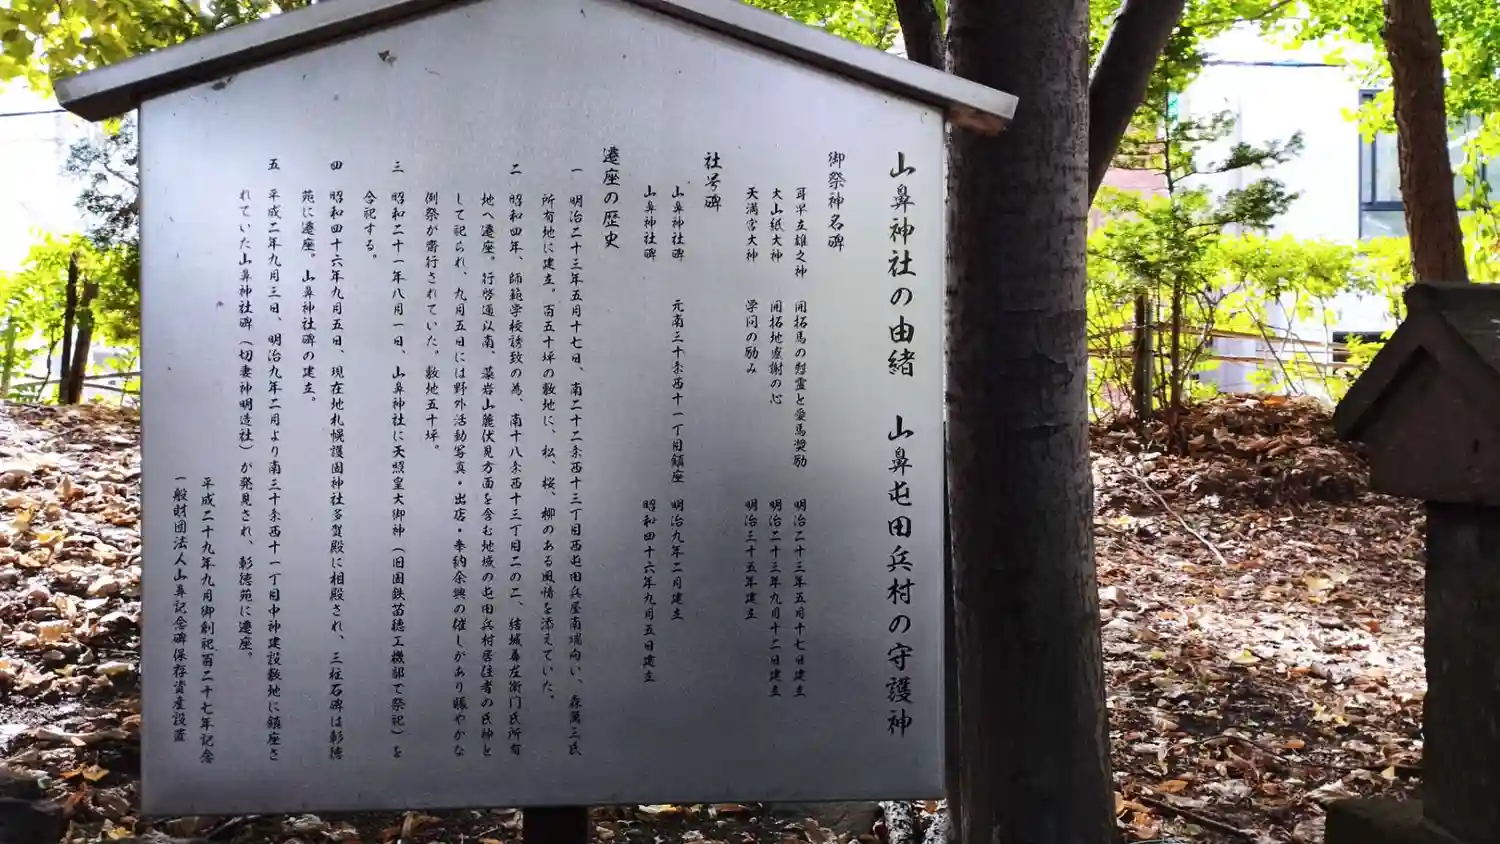 山鼻神社の由緒　山鼻屯田兵村の守護神
御祭神名碑
耳早左雄之神　開拓馬の慰霊と愛馬奨励　明治二十三年五月十七日建立
大山紙大神　開拓地感謝の心　明治二十三年九月十二日建立
天満宮大神　学問の励み　明治三十五年建立
社号碑
山鼻神社碑　元南三十条西十一丁目鎮座　明治九年二月建立
山鼻神社碑　昭和四十六年九月五日建立
遷座の歴史
一　明治二十三年五月十七日、南二十二条西十三丁目西屯田兵屋南端向い、森萬三氏
所有地に建立。百五十坪の敷地に、松、桜、柳のある風情を添えていた。
二　昭和四年、師範学校誘致の為、南十八条西十三丁目二の二、結城幕左衛門氏所有
地へ遷座。行啓通以南、藻岩山麓伏見方面を含む地域の屯田兵村居住者の氏神と
して祀られ、九月五日には野外活動写真・出店・奉納余興の催しがあり賑やかな
例祭が齋行されていた。敷地五十坪。
三　昭和二十一年八月一日、山鼻神社に天照皇大御神（旧国鉄苗穂工機部で祭祀）を
合祀する。
四　昭和四十六年九月五日、現在地札幌護国神社多賀殿に相殿され、三柱石碑は彰徳
苑に遷座。山鼻神社碑の建立。
五　平成二年九月三日、明治九年二月より南三十条西十一丁目中神建設敷地に鎮座さ
れていた山鼻神社碑（切妻神明造社）が発見され、彰徳苑に遷座。
平成二十九年九月御創祀百二十七年記念
一般財団法人山鼻記念碑保存資産設置